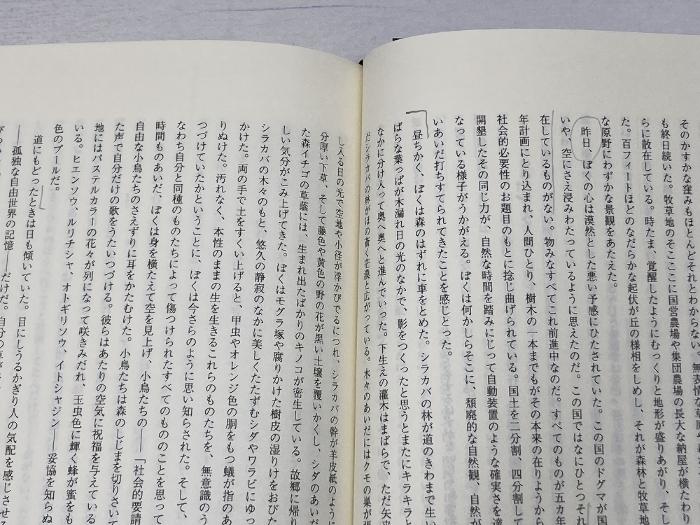 そのかすかな窪みもほとんどそれとわからない。
も終日続いた。牧草地のそこここに国営農場や集団農場の長大な納屋が横たわ
らに散在している。時たま、覚醒したようにむっくりと地形が盛りあがり、そし
た。百フィートほどのなだらかな起伏が丘の様相をしめし、それが森林と牧草地
な原野にわずかな景観をあたえた。
昨日、ぼくの心は漠然とした悪い予感にひたされていた。この国のドグマが
いや、空にさえ浸みわたっているように思えたのだ。この国ではなにひとつそれ
在しているものがない。物みなすべてこれ前進中なのだ。すべてのものが五カ年
年計画にとり込まれ、人間ひとり、樹木の一本までもがその本来の在りようか
社会的必要性のお題目のもとに捻じ曲げられている。国土を二分割、四分割して
開墾したその同じ力が、自然な時間を踏みにじって自動装置のような確実さを
なっている様子がうかがえる。ぼくは何かしらそこに、頽廃的な自然観、自然が
いあいだ打ちすてられてきたことを感じとった。
昼ちかく、ぼくは森のはずれに車をとめた。シラカバの林が道のきわまで生い
ばらな葉っぱが木漏れ日の光のなかで、影をつくったと思うとまたにキラキラと
なかに分け入って奥へ奥へと進んでいった。下生えの灌木はまばらで、ただ
だシラカバの林が
し入る日の光で空地や小径が浮かびでるにつれ、シラカバの幹が羊皮紙のように
分厚い下草、そして藤色や黄色の野の花が黒い土壌を覆いかくし、シダのあいだ
た森イチゴの草蔭には、生まれ出たばかりのキノコが密生している。故郷に帰り
しい気分がこみ上げてきた。ぼくはモグラ塚や腐りかけた樹皮の湿りけをおびた
シラカバの木々のもと、悠久の静寂のなかに美しくたたずむシダやワラビにゆっ
かけた。両の手で土をすくい上げると、甲虫やオレンジ色の胴をもつ蟻が指のあ
りぬけた。汚れなく、本性のままの生を生きるこれらのものたちを、無意識のう
つづけていたかということに、ぼくは今さらのように思い知らされた。そして、
なわち自分と同種のものたちによって傷つけられたすべてのもののことを思って
時間ものあいだ、ぼくは身を横たえて空を見上げ、小鳥たちの――「社会的要請
自由な小鳥たちのさえずりに耳をかたむけた。小鳥たちは森のしじまを切りさいて
た声で自分だけの歌をうたいつづける。彼らはあたりの空気に祝福を与えている
地にはパステルカラーの花々が列になって咲きみだれ、玉虫色に輝く蜂が蜜をも
いる。ヒエンソウ、ルリチシャ、オトギリソウ、イトシャジン――妥協を知らぬ
色のプールだ。
道にもどったときは日も傾いていた。目にしうるかぎり人の気配を感じさせる
――孤独な自由世界の記憶――だけだ。